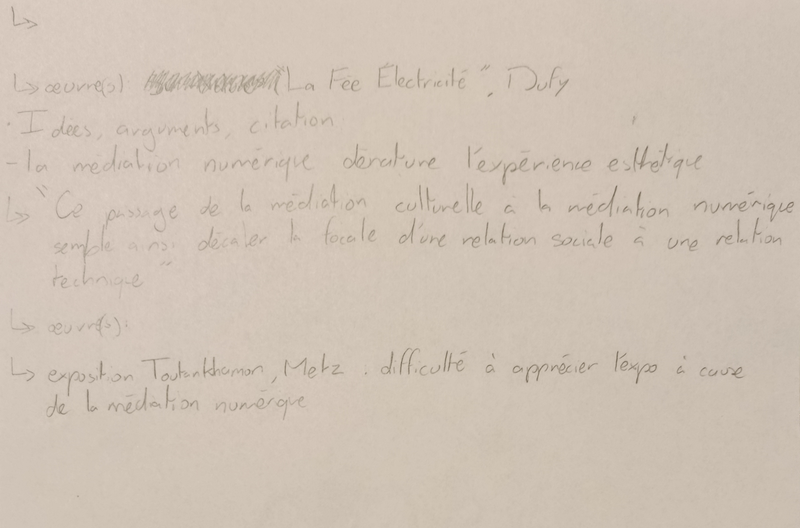 ↳
↳ œuvre(s) "La Fée Électricité", Dufy
· Idées, arguments, citation
- la médiation numérique dénature l'expérience esthétique
↳ "Ce passage de la médiation culturelle à la médiation numérique
semble ainsi décaler la focale d'une relation sociale à une relation
technique"
↳ œuvre(s):
↳ exposition Toutankhamon, Metz. difficulté à apprécier l'expo à cause
de la médiation numérique